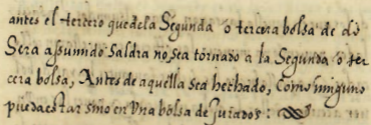 antes el tercero que de la Segunda o tercera bolsa de dō
Sera assumido saldra no sea tornado a la Segunda o ter
cera bolsa, Antes de aquella sea hechado, Como ninguno
pueda estar sino en Vna bolsa de Jurados: